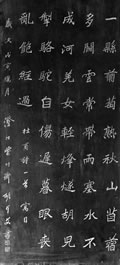 一縣葡萄熟秋山苜蓿
多關雲常帶雨塞水不
成河羌女輕烽燧胡兒
掣駱駝自傷遲暮眼喪
亂飽經過 杜甫詩一首寓目